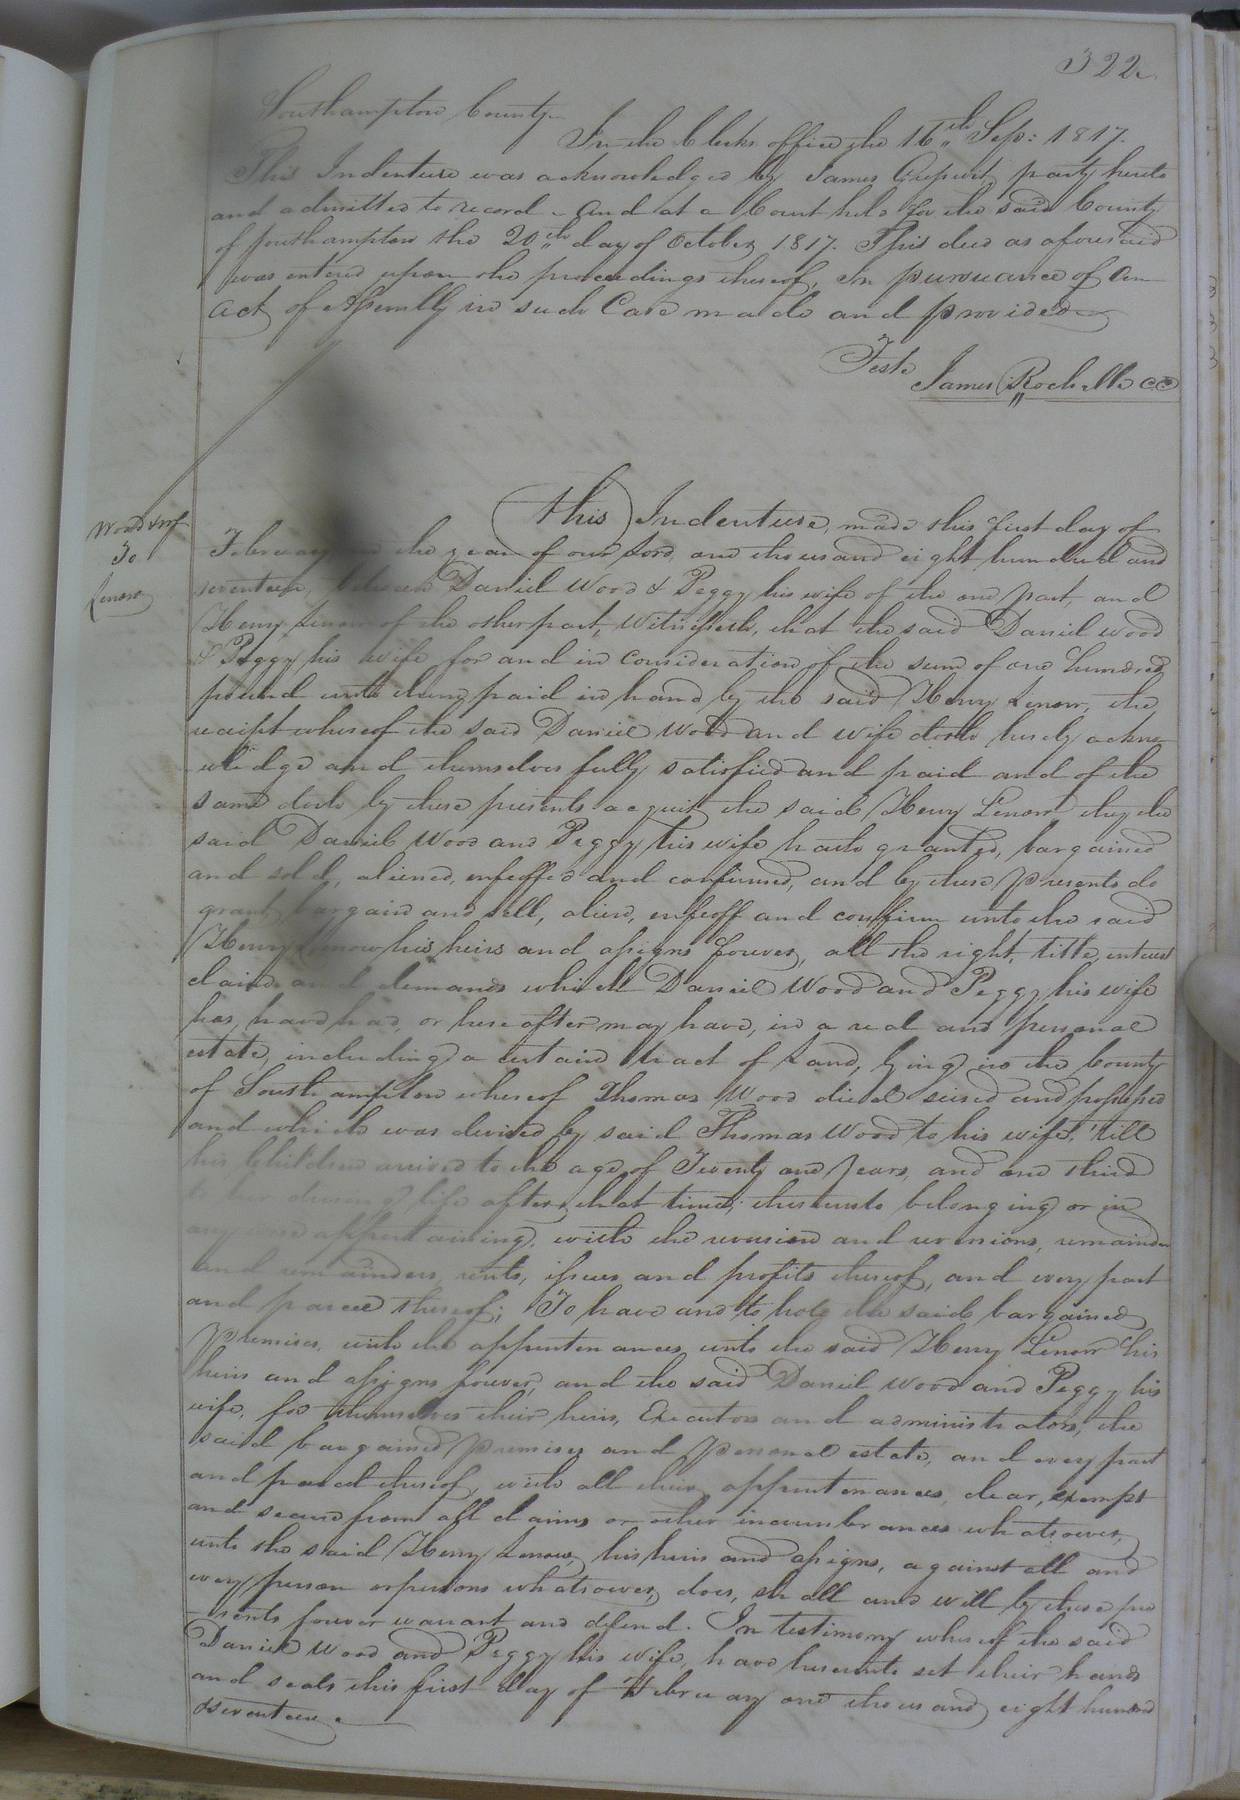 322
Southampton County
In the Clerks office the 16th Sep: 1817.
This Indenture was acknowledged by James party hereto
and admitted to record - And at a Court held for the said County
of Southampton the 20th day of October 1817. This deed as aforesaid
was entered upon the proceedings thereof, in pursuance of an
Act of Assembly in such Case made and provided
Teste
James Rochelle CC
This Indenture, made this first day of
Wood & wf
To
Lenow
February in the year of our Lord, one thousand eight hundred and
seventeen, between Daniel Wood & Peggy his wife of the one part, and
Henry Lenow of the other part, Witnesseth, that the said Daniel Wood
& Peggy his wife for and in Consideration of the sum of one hundred
pound unto them paid in hand by the said Henry Lenow, the
receipt whereof the said Daniel Wood and wife doth hereby ackno
wledge and themselves fully satisfied and paid and of the
same doth by these presents acquit the said Henry Lenow they the
said Daniel Wood and Peggy his wife hath granted, bargained
and sold, aliened, enfeoffed and confirmed, and by these presents do
grant, bargain and sell, alien, enfeoff and confirm unto the said
Henry Lenow his heirs and assigns forever, all the right, title, interest
claim and demands which Daniel Wood and Peggy his wife
has, have had, or hereafter may have, in a real and personal
estate, including a certain tract of Land, lying in the County
of Southampton whereof Thomas Wood died seised and possessed
and which was devised by said Thomas Wood to his wife, 'till
his Children arrived to the age of Twenty one years, and one third
to her during life after that time; thereunto belonging or in
any wise appertaining, with the revision and reversions, remainder
and remainders, rents, issues and profits thereof, and every part
and parcel thereof; To have and to hold the said bargained
premises, with the appurtenances, unto the said Henry Lenow his
heirs and assigns forever, and the said Daniel Wood and Peggy his
wife, for themselves their heirs, Executors and administrators, the
said bargained premises and personal estate, and every part
and parcel thereof, with all their appurtenances, clear, exempt
and secure from all claims or other incumbrances whatsoever,
unto the said Henry Lenow, his heirs and assigns, against all and
every person or persons whatsoever, does, shall and will by these pre
-sents forever warrant and defend. In testimony whereof the said
Daniel Wood and Peggy his wife, have hereunto set their hands
and seals this first day of February one thousand eight hundred
& seventeen.